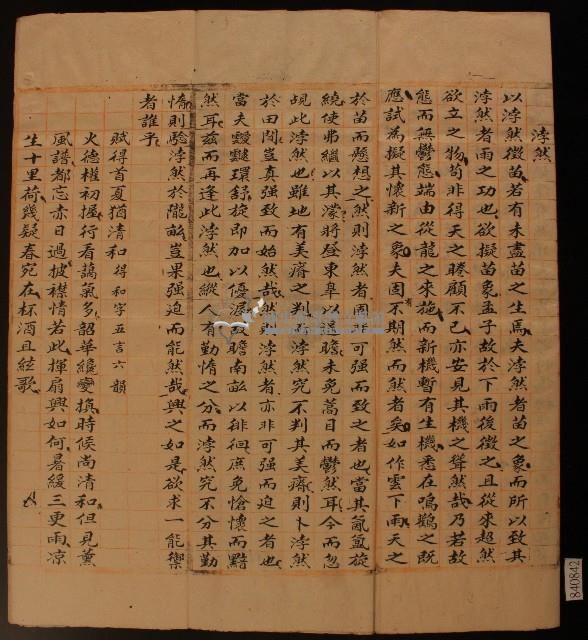 浡然
以浡然徵苗若有未盡苗之生焉夫浡然者苗之象而所以致其
浡然者雨之功也欲擬苗象孟子故於下雨後徵之且從來超然
欲立之物苟非得天之眷顧不已亦安見其機之聳然哉乃若故
態而無鬱態端由從龍之來施而新機暫有生機悉在鳴鸛之既
應試為擬其懷新之象夫固不期然而然者矣如作雲下雨天之
於苗而懸想之然則浡然者固非可強而致之者也當其氤氳旋
繞使弗繼以其濛將登東皋以遠瞻未免蒿目而鬱然耳今而忽
覩此浡然也雖地有美瘠之判若浡然究不判其美瘠則卜浡然
於田間豈真强致而始然哉然則浡然者亦非可强而迫之者也
當夫靉靆環舒旋即加以優渥瞻南畝以徘徊庶免愴懷而黯
然耳兹而再逢此浡然也縱人有勤惰之分而浡然究不分其勤
惰則驗浡然於隴畝豈果强迫而能然哉興之如是欲求一能禦
者誰乎
賦得首夏猶清和得和字五言六韻
火德權初握行看藹氣多韶華纔變換時候尚清和但見薰
風譜都忘赤日過披襟情若此揮扇興如何暑緩三更雨凉
生十里荷幾疑春宛在杯酒且絃歌
840842